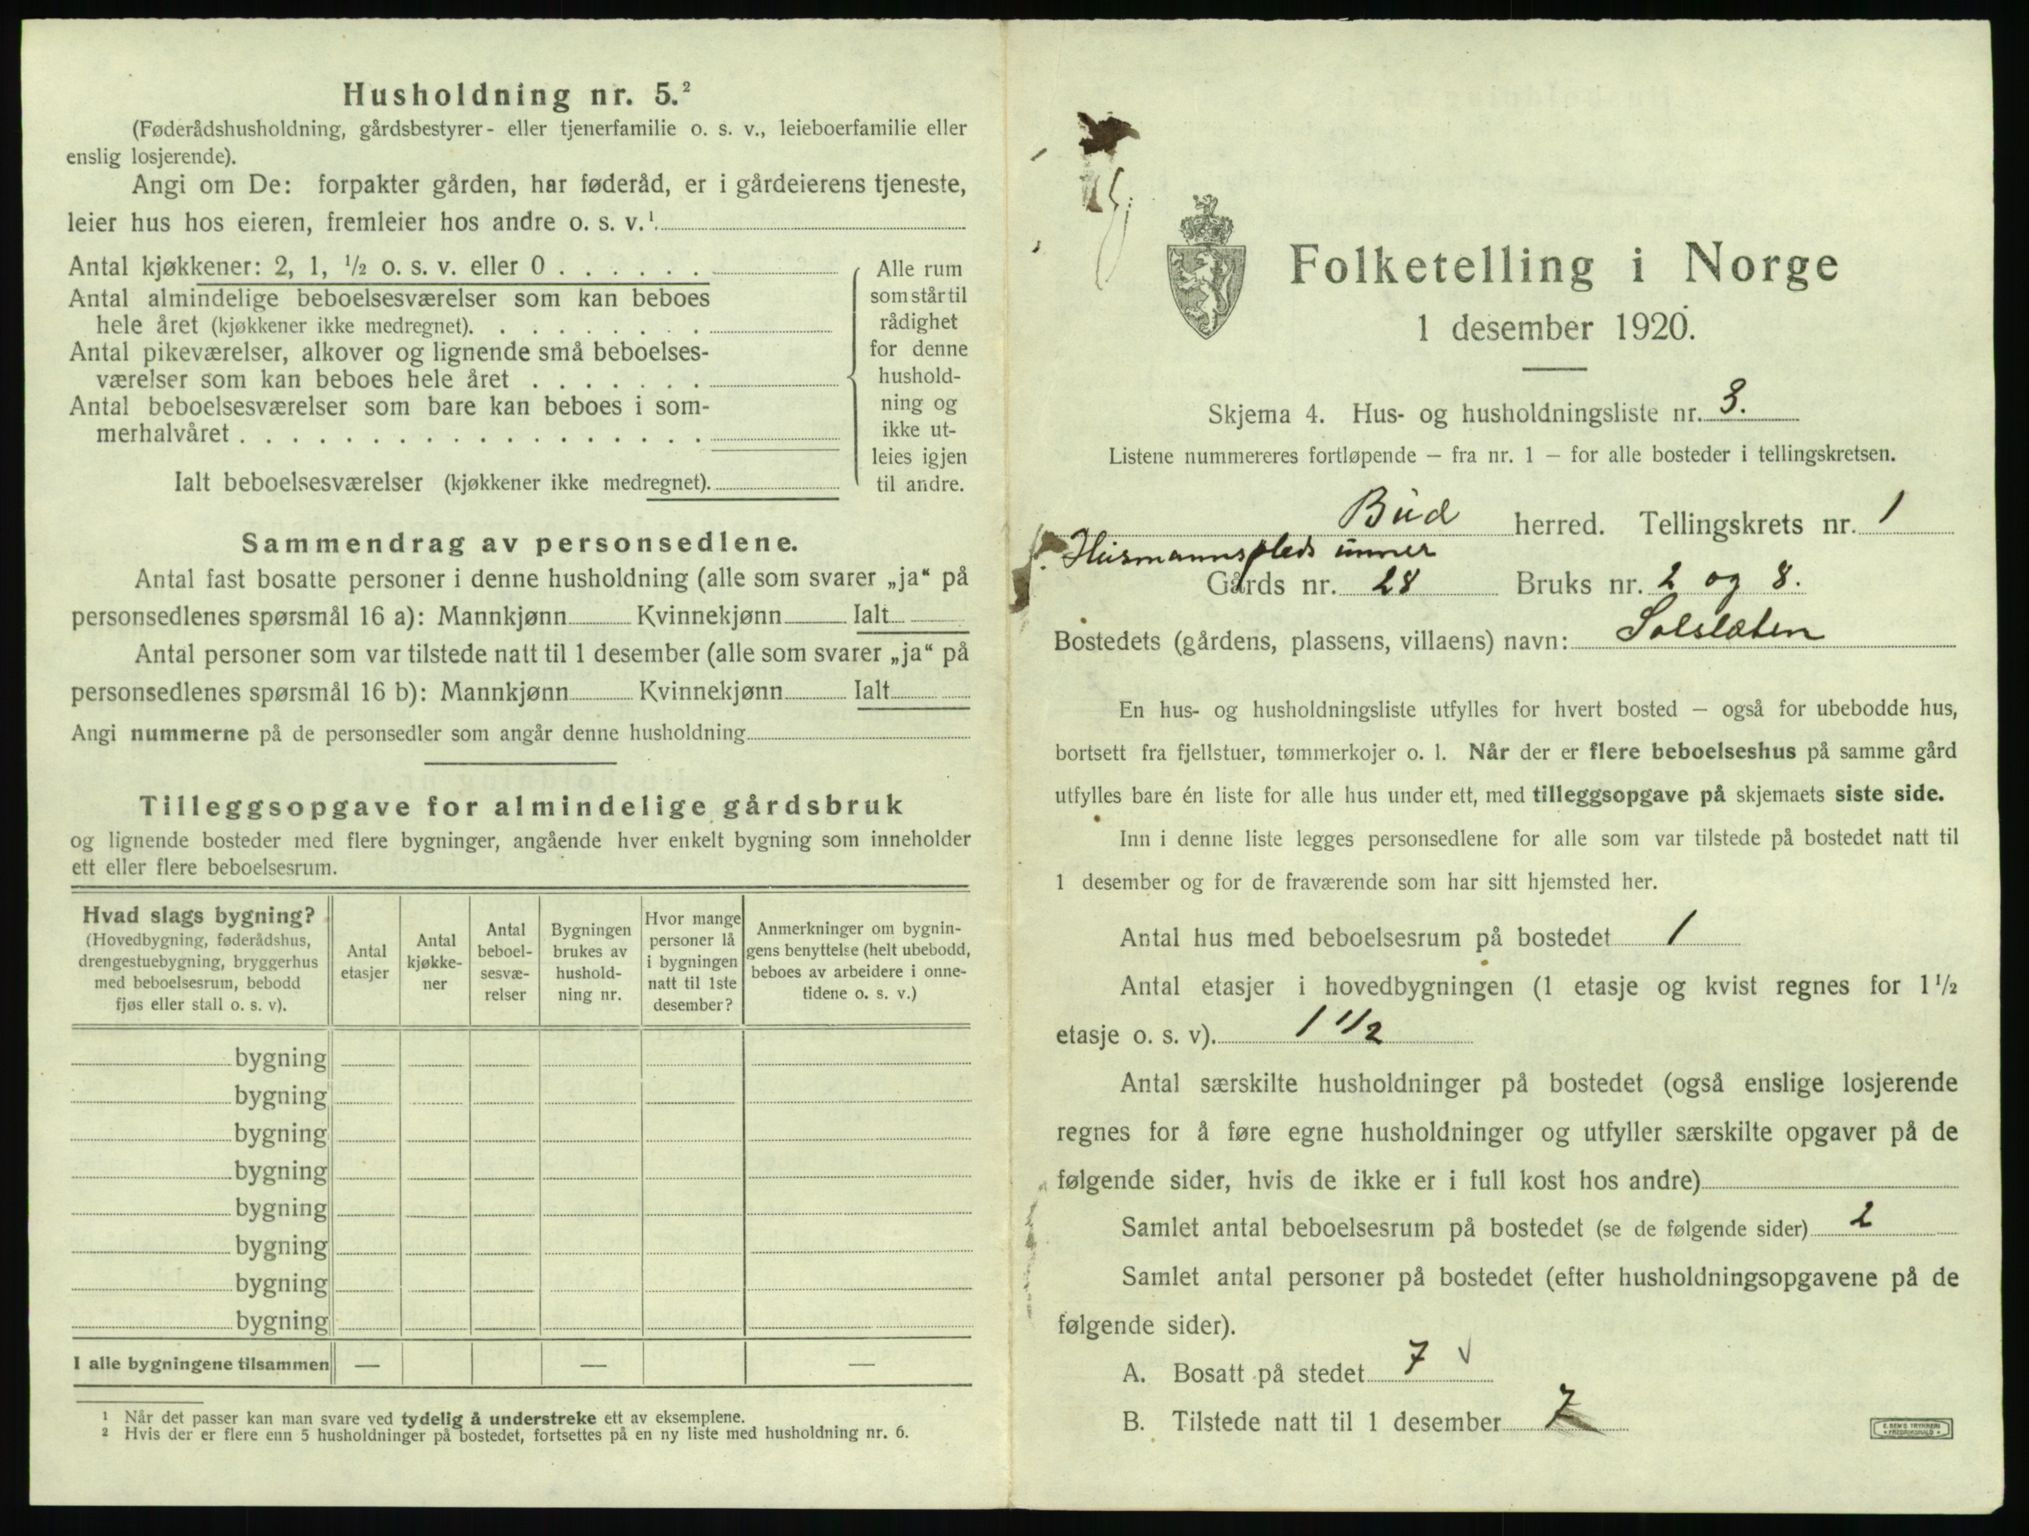 Husholdning nr. 5.²
(Føderådshusholdning, gårdsbestyrer- eller tjenerfamilie o. s. v., leieboerfamilie eller
enslig losjerende).
Angi om De: forpakter gården, har føderåd, er i gårdeierens tjeneste,
leier hus hos eieren, fremleier hos andre o. s. v.¹
Antal kjøkkener: 2, 1, ½ o. s. v. eller 0 . . . . . .
Antal almindelige beboelsesværelser som kan beboes
hele året (kjøkkener ikke medregnet). . . . . . . . .
Antal pikeværelser, alkover og lignende små beboelses-
værelser som kan beboes hele året . . . . . . .
Antal beboelsesværelser som bare kan beboes i som-
merhalvåret . . . . . . . . . . . . . . . . . .
Ialt beboelsesværelser (kjøkkener ikke medregnet).
Alle rum
som står til
rådighet
for denne
hushold-
ning og
ikke ut-
leies igjen
til andre.
Sammendrag av personsedlene.
Antal fast bosatte personer i denne husholdning (alle som svarer „ja“ på
personsedlenes spørsmål 16 a): Mannkjønn Kvinnekjønn Ialt
Antal personer som var tilstede natt til 1 desember (alle som svarer „ja“ på
personsedlenes spørsmål 16 b): Mannkjønn Kvinnekjønn Ialt
Angi nummerne på de personsedler som angår denne husholdning
Tilleggsopgave for almindelige gårdsbruk
og lignende bosteder med flere bygninger, angående hver enkelt bygning som inneholder
ett eller flere beboelsesrum.
Hvad slags bygning?
(Hovedbygning, føderådshus,
drengestuebygning, bryggerhus
med beboelsesrum, bebodd
fjøs eller stall o. s. v).
Antal
etasjer
Antal
kjøkke-
ner
Antal
beboel-
sesvæ-
relser
Bygningen
brukes av
hushold-
ning nr.
Hvor mange
personer lå
i bygningen
natt til 1ste
desember?
Anmerkninger om bygnin-
gens benyttelse (helt ubebodd,
beboes av arbeidere i onne-
tidene o. s. v.)
bygning
bygning
bygning
bygning
bygning
bygning
bygning
bygning
I alle bygningene tilsammen — — —
¹ Når det passer kan man svare ved tydelig å understreke ett av eksemplene.
² Hvis der er flere enn 5 husholdninger på bostedet, fortsettes på en ny liste med husholdning nr. 6.
Folketelling i Norge
1 desember 1920.
Skjema 4. Hus- og husholdningsliste nr. 3.
Listene nummereres fortløpende — fra nr. 1 — for alle bosteder i tellingskretsen.
Bud herred. Tellingskrets nr. 1
Husmannsplads unner
Gårds nr. 28 Bruks nr. 2 og 8.
Bostedets (gårdens, plassens, villaens) navn: Solsletten
En hus- og husholdningsliste utfylles for hvert bosted — også for ubebodde hus,
bortsett fra fjellstuer, tømmerkojer o. l. Når der er flere beboelseshus på samme gård
utfylles bare én liste for alle hus under ett, med tilleggsopgave på skjemaets siste side.
Inn i denne liste legges personsedlene for alle som var tilstede på bostedet natt til
1 desember og for de fraværende som har sitt hjemsted her.
Antal hus med beboelsesrum på bostedet 1
Antal etasjer i hovedbygningen (1 etasje og kvist regnes for 1½
etasje o. s. v). 1 1/2
Antal særskilte husholdninger på bostedet (også enslige losjerende
regnes for å føre egne husholdninger og utfyller særskilte opgaver på de
følgende sider, hvis de ikke er i full kost hos andre)
Samlet antal beboelsesrum på bostedet (se de følgende sider) 2
Samlet antal personer på bostedet (efter husholdningsopgavene på de
følgende sider).
A. Bosatt på stedet 7 √
B. Tilstede natt til 1 desember 7